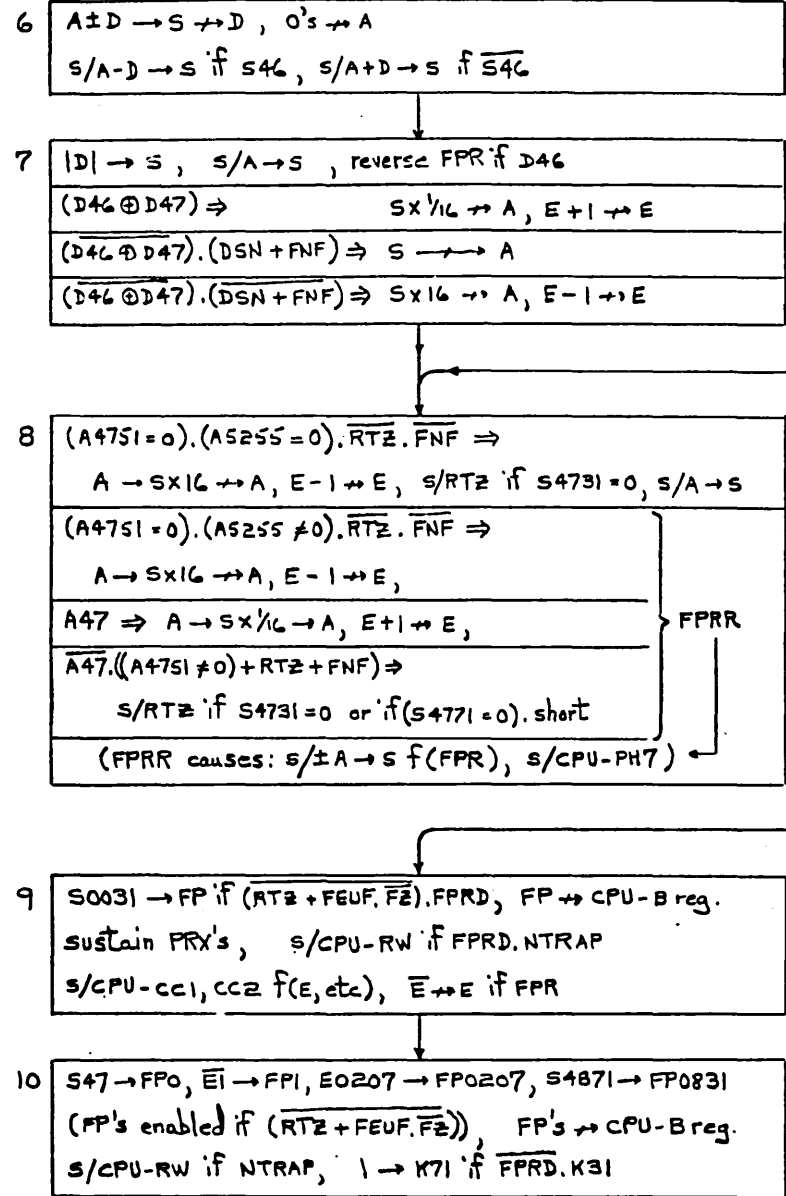 6
A±D → S ↛ D , 0's ↛ A
S/A-D → S if S46, S/A+D → S if S̅4̅6̅
7
|D| → S , S/A → S , reverse FPR if D46
(D46 ⊕ D47) ⇒ S×1/16 ↛ A, E+1 ↛ E
(D̅4̅6̅ ̅⊕̅ ̅D̅4̅7̅).(DSN + FNF) ⇒ S ↛ A
(D̅4̅6̅ ̅⊕̅ ̅D̅4̅7̅).(D̅S̅N̅ ̅+̅ ̅F̅N̅F̅) ⇒ S×16 ↛ A, E-1 ↛ E
8
(A4751=0).(A5255=0).R̅T̅Z̅.F̅N̅F̅ ⇒
A → S×16 ↛ A, E-1 ↛ E, S/RTZ if S4731=0, S/A → S
(A4751=0).(A5255≠0).R̅T̅Z̅.F̅N̅F̅ ⇒
A → S×16 ↛ A, E-1 ↛ E,
A47 ⇒ A → S×1/16 → A, E+1 ↛ E,
FPRR
A̅4̅7̅.((A4751≠0)+RTZ+FNF) ⇒
S/RTZ if S4731=0 or if (S4771=0).short
(FPRR causes: S/±A → S f(FPR), S/CPU-PH7)
9
S0031 → FP if (R̅T̅Z̅ ̅+̅ ̅F̅E̅U̅F̅.̅F̅Z̅).FPRD, FP ↛ CPU-B reg.
sustain PRX's, S/CPU-RW if FPRD.NTRAP
S/CPU-CC1, CC2 f(E, etc), E̅ ↛ E if FPR
10
S47 → FP0, E̅1̅ → FP1, E0207 → FP0207, S4871 → FP0831
(FP's enabled if (R̅T̅Z̅ ̅+̅ ̅F̅E̅U̅F̅.̅F̅Z̅)), FP's ↛ CPU-B reg.
S/CPU-RW if NTRAP, 1 → K71 if F̅P̅R̅D̅.K31